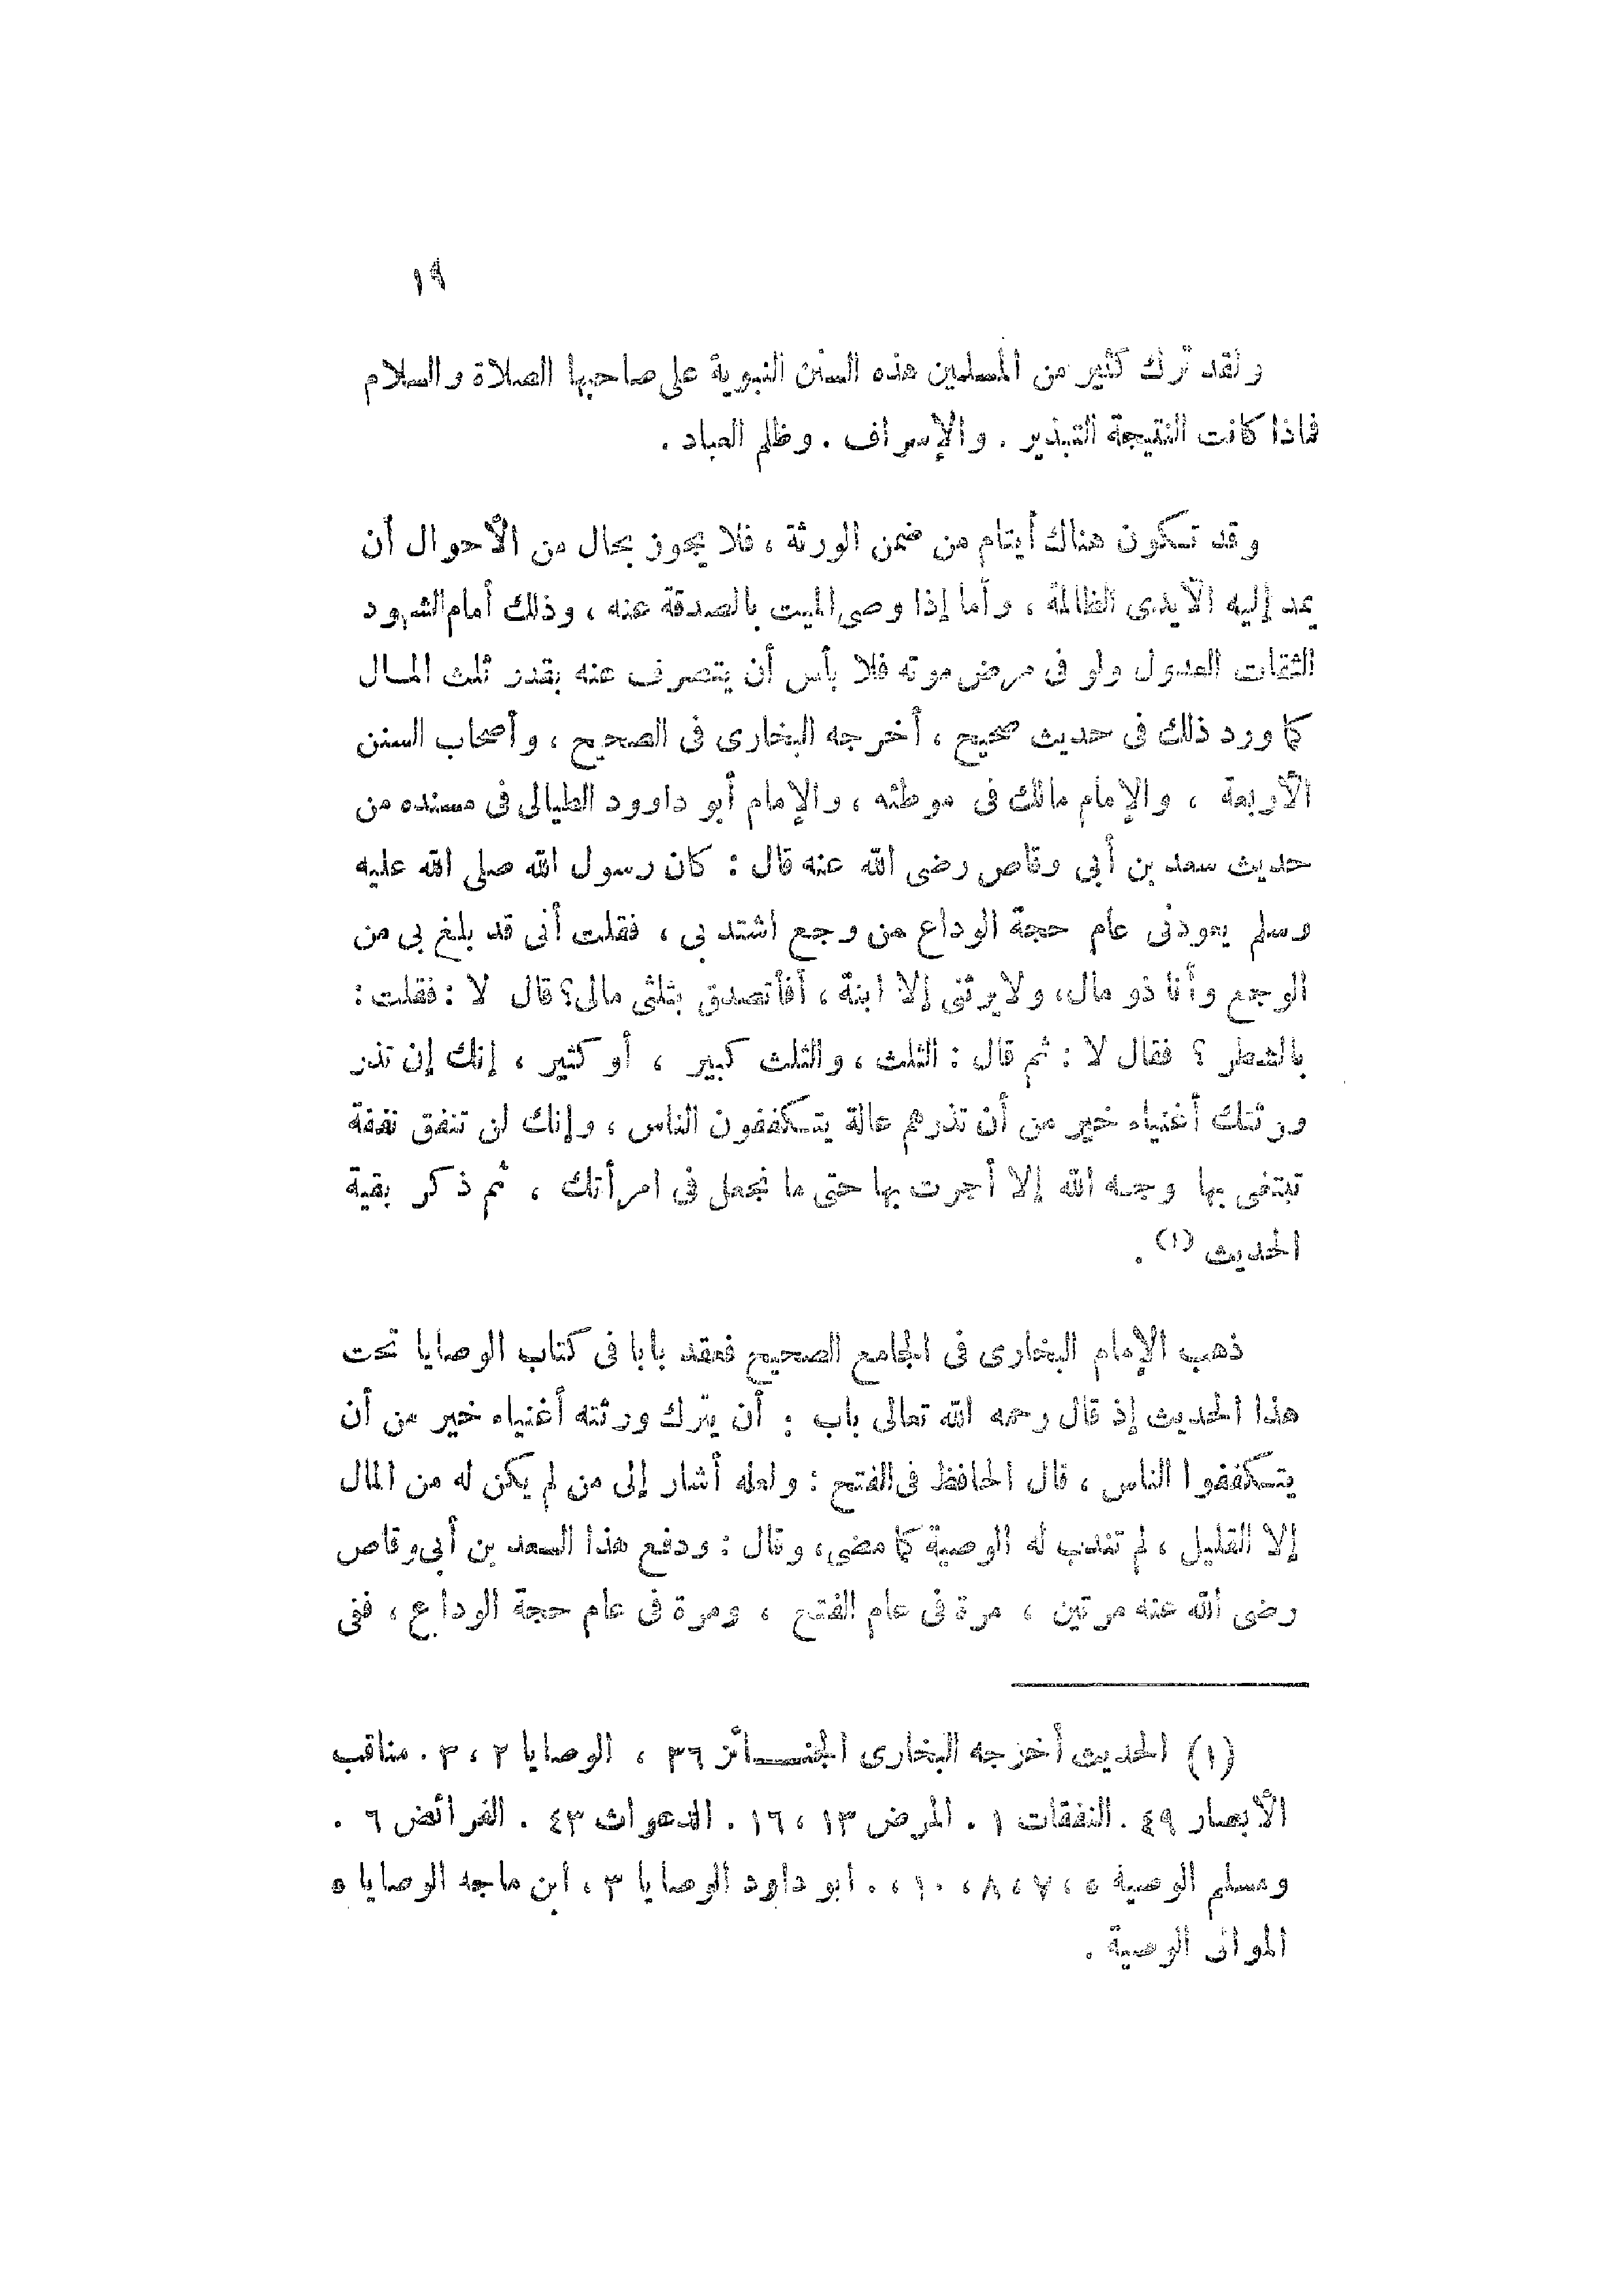 ١٩
ولقد ترك كثير من المسلمين هذه السنن النبوية على صاحبها الصلاة والسلام
فماذا كانت النتيجة التبذير . والإسراف . وظلم العباد .
وقد تكون هناك أيتام من ضمن الورثة ، فلا يجوز بحال من الأحوال أن
يمد إليه الأيدى الظالمة ، وأما إذا وصى الميت بالصدقة عنه ، وذلك أمام الشهود
الثقات العدول ولو فى مرض موته فلا بأس أن يتصرف عنه بقدر ثلث المال
كما ورد ذلك فى حديث صحيح ، أخرجه البخارى فى الصحيح ، وأصحاب السنن
الأربعة ، والإمام مالك فى موطئه ، والإمام أبو داوود الطيالى فى مسنده من
حديث سعد بن أبى وقاص رضى الله عنه قال : كان رسول الله صلى الله عليه
وسلم يعودنى عام حجة الوداع من وجع اشتد بى ، فقلت أنى قد بلغ بى من
الوجع وأنا ذو مال ، ولا يرثنى إلا ابنة ، أفأتصدق بثلثى مالى؟ قال لا : فقلت :
بالشطر ؟ فقال لا : ثم قال : الثلث ، والثلث كبير ، أو كثير ، إنك إن تذر
ورثتك أغنياء خير من أن تذرهم عالة يتكففون الناس ، وإنك لن تنفق نفقة
تبتغى بها وجه الله إلا أجرت بها حتى ما تجعل فى امرأتك ، ثم ذكر بقية
الحديث (١) .
ذهب الإمام البخارى فى الجامع الصحيح فعقد بابا فى كتاب الوصايا تحت
هذا الحديث إذ قال رحمه الله تعالى باب : أن يترك ورثته أغنياء خير من أن
يتكففوا الناس ، قال الحافظ فى الفتح : ولعله أشار إلى من لم يكن له من المال
إلا القليل ، لم تندب له الوصية كما مضى ، وقال : ودفع هذا السعد بن أبى وقاص
رضى الله عنه مرتين ، مرة فى عام الفتح ، ومرة فى عام حجة الوداع ، ففى
(١) الحديث أخرجه البخارى الجنائز ٣٦ ، الوصايا ٢ ، ٣ . مناقب
الأبصار ٤٩ . النفقات ١ . المرض ١٣ ، ١٦ . الدعوات ٤٣ . الفرائض ٦ .
ومسلم الوصية ٥ ، ٧ ، ٨ ، ١٠ ، . ابو داود الوصايا ٣ ، ابن ماجه الوصايا ٥
الموائى الوصية .